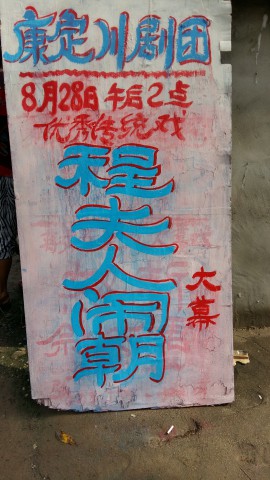 康定川剧团
8月28日午后2点
优秀传统戏
程夫人闹朝
大幕